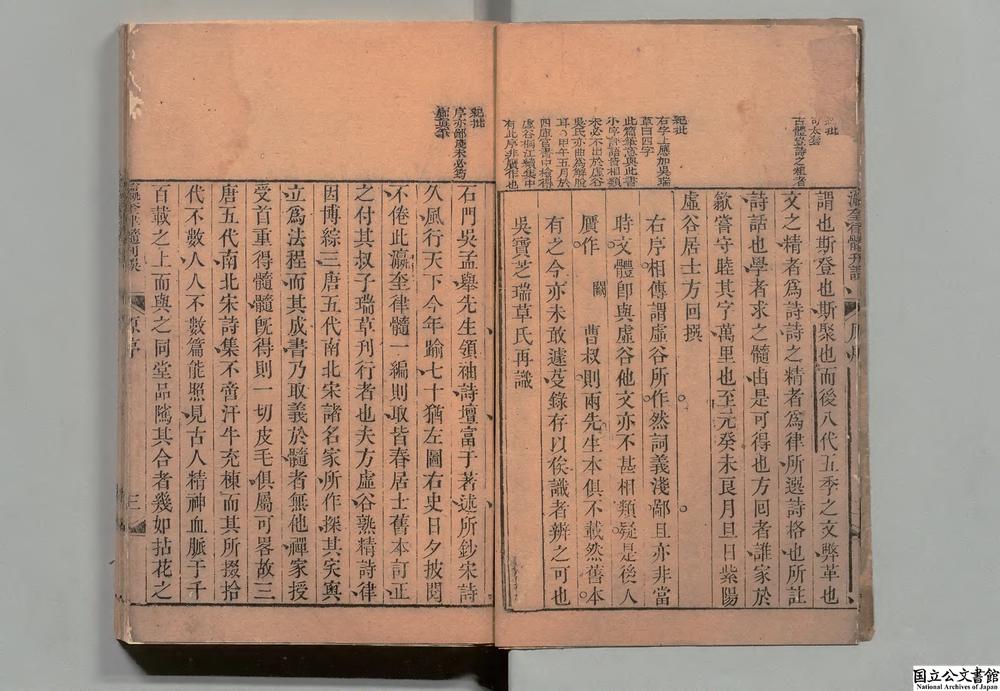 謂也斯登也斯聚也而後八代五季之文弊革也
文之精者爲詩詩之精者爲律所選詩格也所註
詩話也學者求之髓由是可得也方回者誰家於
歙嘗守睦其字萬里也至元癸未良月旦日紫陽
虛谷居士方回撰
右序相傳謂虛谷所作然詞義淺鄙且亦非當
時文體卽與虛谷他文亦不甚相類疑是後人
贋作 闕 曹叔則兩先生本俱不載然舊本
有之今亦未敢遽芟錄存以俟識者辨之可也
吳寶芝瑞草氏再識
古體登詩之粗者
紀批
右字上應加吳瑞
草曰四字
此篇筆意與此書
小序評語皆相類
未必不出於虛谷
吳氏亦曲爲解脫
耳 甲午五月於
四庫官書中檢得
虛谷桐江續集中
有此序非贋作也
石門吳孟舉先生領袖詩壇富于著述所鈔宋詩
久風行天下今年踰七十猶左圖右史日夕披閱
不倦此瀛奎律髓一編則取皆春居士舊本訂正
之付其叔子瑞草刊行者也夫方虛谷熟精詩律
因博綜三唐五代南北宋諸名家所作探其突奧
立爲法程而其成書乃取義於髓者無他禪家授
受首重得髓髓旣得則一切皮毛俱屬可畧故三
唐五代南北宋詩集不啻汗牛充棟而其所掇拾
代不數人人不數篇能照見古人精神血脈于千
百載之上而與之同堂品隲其合者幾如拈花之
紀批
序亦鄙淺未必
原序
三
国立公文書館
National Archives of Japan